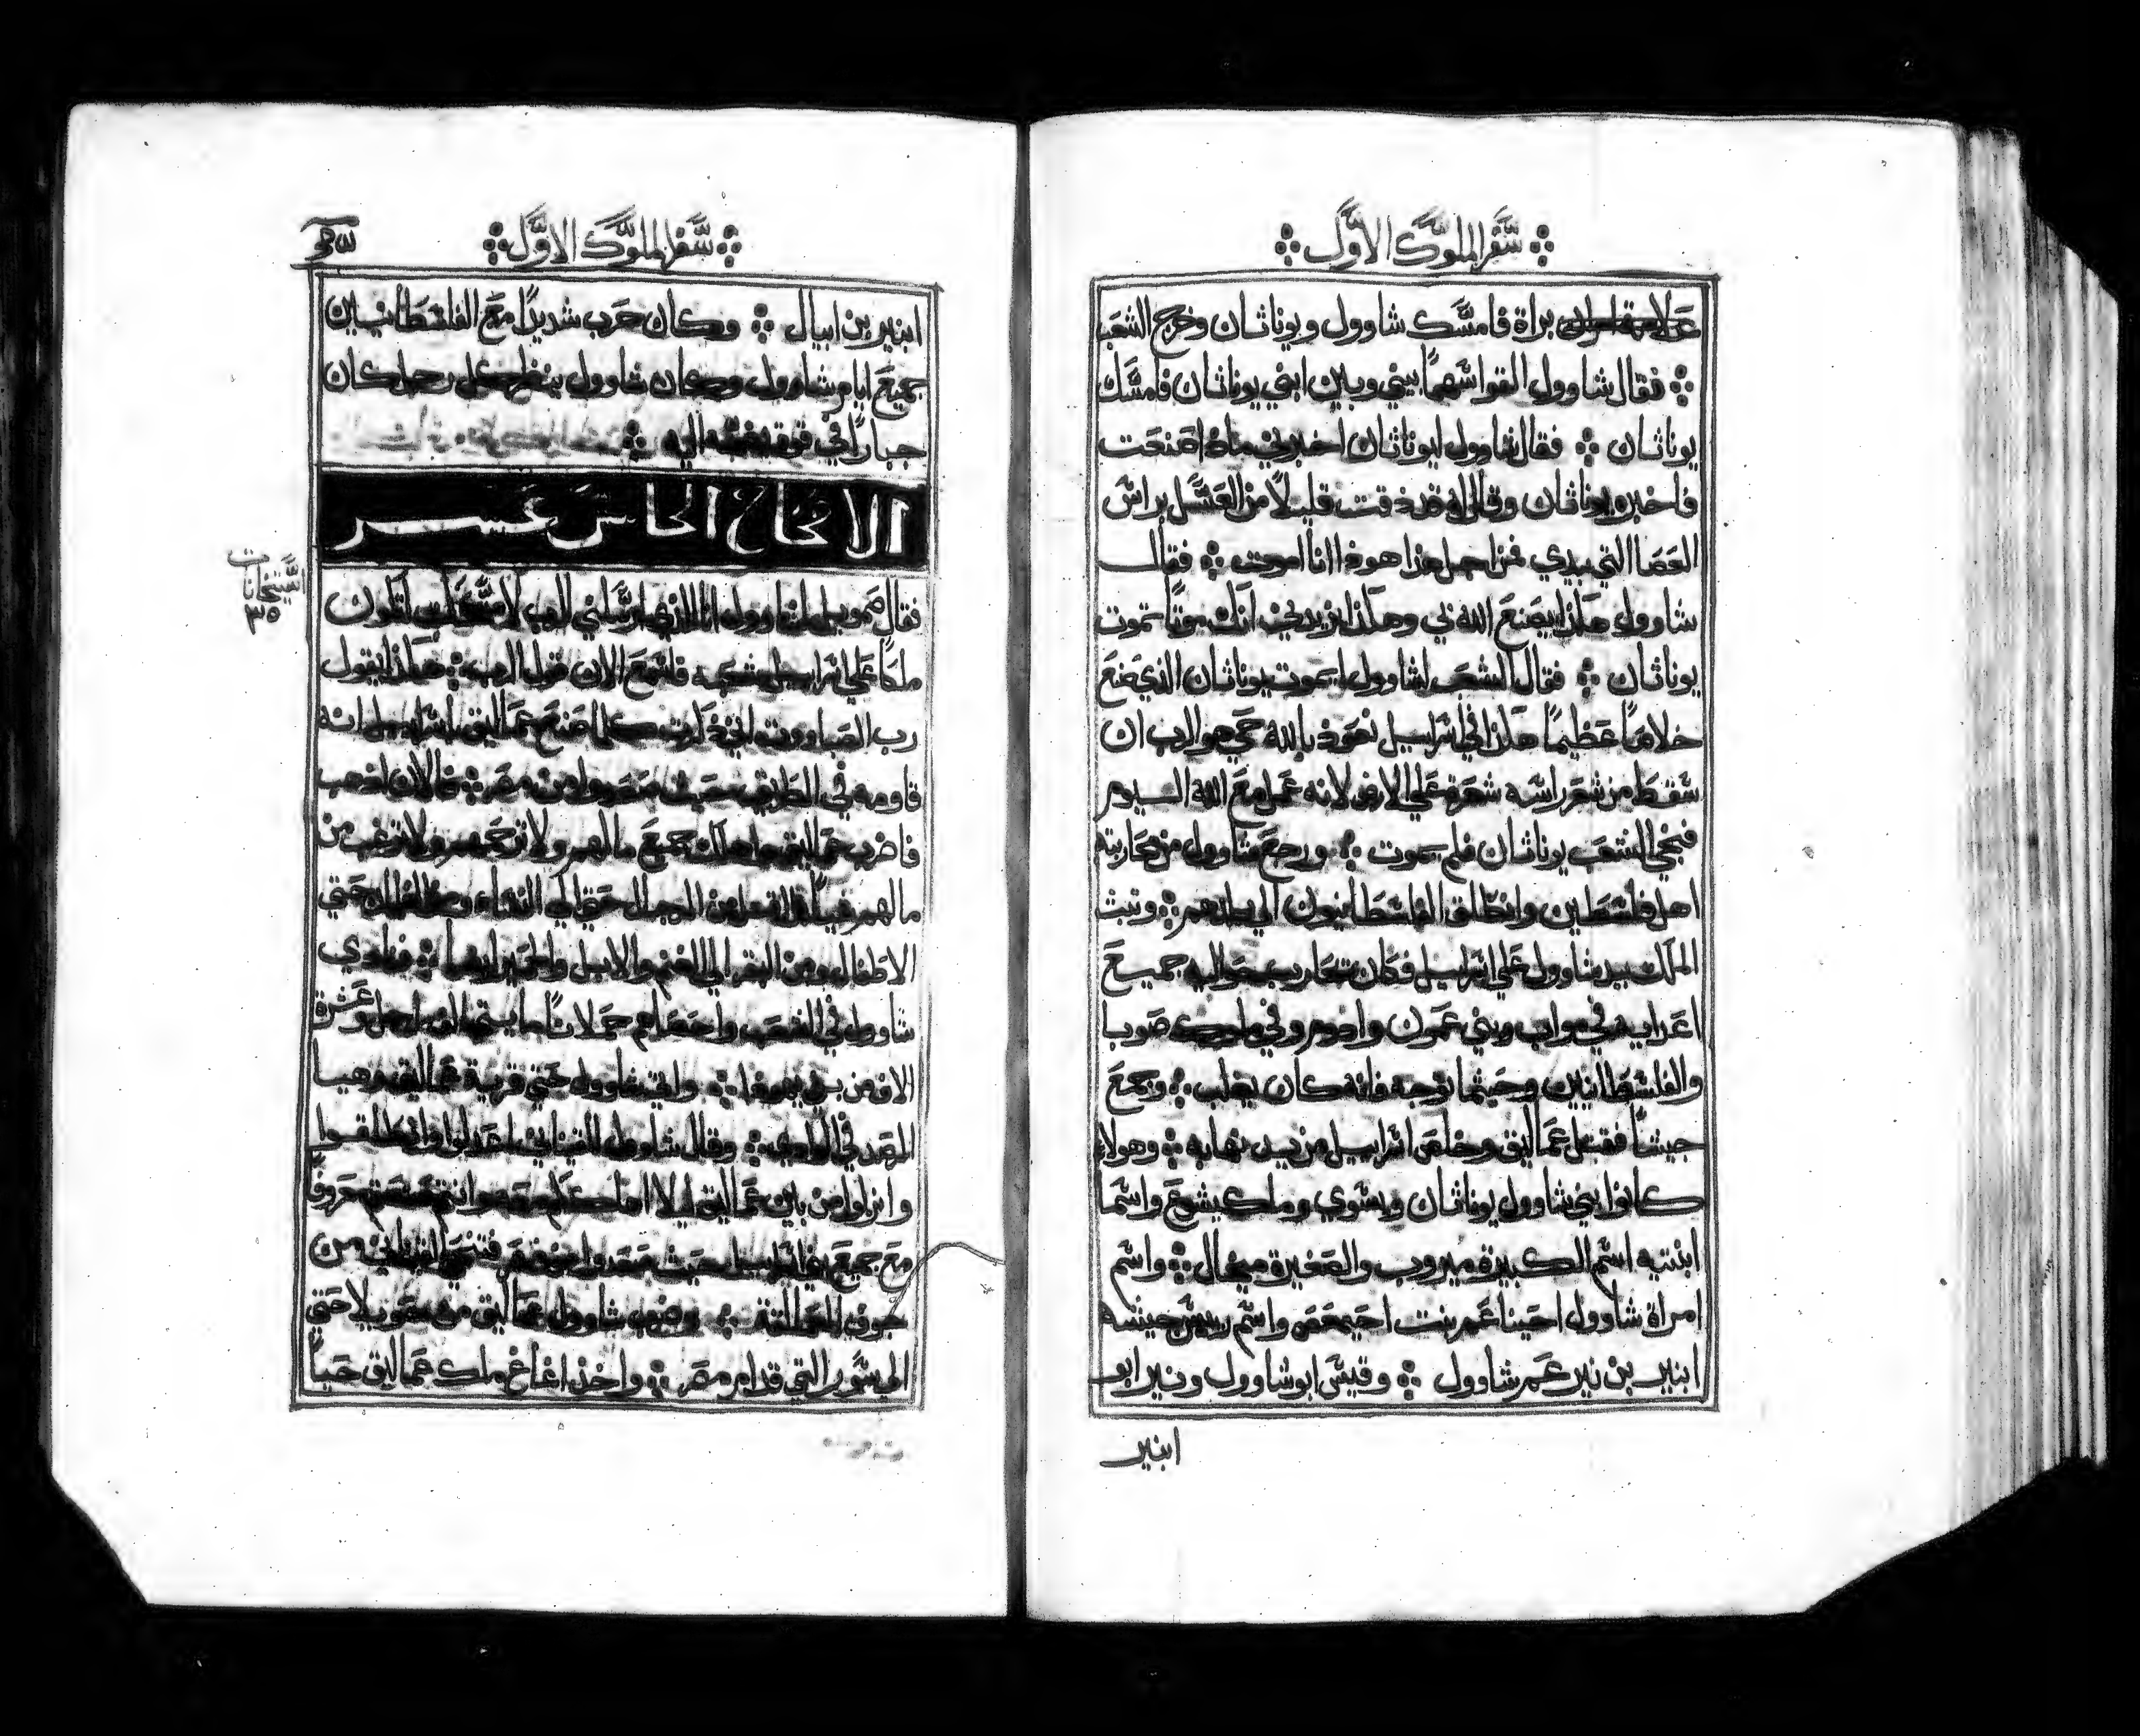 سفر الملوك الاول
براة فامسك شاوول ويوناثان وخرج الشعب
فقال شاوول القوا سهما بيني وبين ابني يوناثان فامسك
يوناثان فقال شاوول ليوناثان اخبرني ماذا صنعت
فاخبره يوناثان وقال اني قد ذقت قليلا من العسل براس
العصا التي بيدي فمن اجل هذا هوذا انا اموت فقال
شاوول هكذا يصنع الله بي وهكذا يزيدني انك موتا تموت
يوناثان فقال الشعب لشاوول ايموت يوناثان الذي صنع
خلاصا عظيما هكذا في اسراييل نعوذ بالله حي هو الرب ان
سقط من شعر راسه شعرة علي الارض لانه عمل مع الله اليوم
فنجي الشعب يوناثان فلم يموت ورجع شاوول من محاربته
اهل فلسطين وانطلق الفلسطانيون الي بلدهم وثبت
الملك بيد شاوول علي اسراييل فكان يحارب حواليه جميع
اعدايه في مواب وبني عمون وادوم وفي ملوك صوبا
والفلسطانيين وحيثما توجه فانه كان يغلب وجمع
جيشا فقتل عماليق وخلص اسراييل من يد نهابه وهولاء
كانوا بني شاوول يوناثان ويسوي وملكيشوع واسما
ابنتيه اسم الكبيرة ميروب والصغيرة ميخال واسم
امراة شاوول احينا عم بنت احيمعص واسم رييس جيشه
ابنير بن نير عم شاوول وقيس ابو شاوول ونير ابو
ابنير
سفر الملوك الاول
ابنير بن ابيال وكان حرب شديدا مع الفلسطانيين
جميع ايام شاوول وكان شاوول ينظر كل رجل كان
جبارا في قوة يضمه اليه
الاصحاح الخامس عشر
فقال صموييل لشاوول انا الذي ارسلني الرب لامسحك لتكون
ملكا علي اسراييل شعبه فاسمع الان قول الرب هكذا يقول
رب الصباووت اني ذكرت كلما صنع عماليق باسراييل انه
قاومه في الطريق حيث صعدوا من مصر فالان اذهب
فاضرب عماليق واهلك جميع مالهم ولا ترحمهم ولا ترغب من
مالهم شيا اقتل من الرجال حتي الي النساء ومن الغلمان حتي
الاطفال ومن البقر الي الغنم والابل والحمير ايضا فنادي
شاوول في الشعب واحصاهم حملانا مايتي الف راجل وعشرة
الاف من بني يهوذا واتي شاوول حتي قرية عماليق وهيا
الرصد في الوادي وقال شاوول للقيناني اعدلوا وانطلقوا
وانزلوا من بين عماليق ليلا اهلككم معهم وانتم صنعتم معروفا
مع جميع بني اسراييل حيث صعدوا من مصر فتنحي القيناني من
جوف العمالقة وضرب شاوول عماليق من حويلا حتي
الي سور التي قدام مصر واخذ اغاغ ملك عماليق حيا